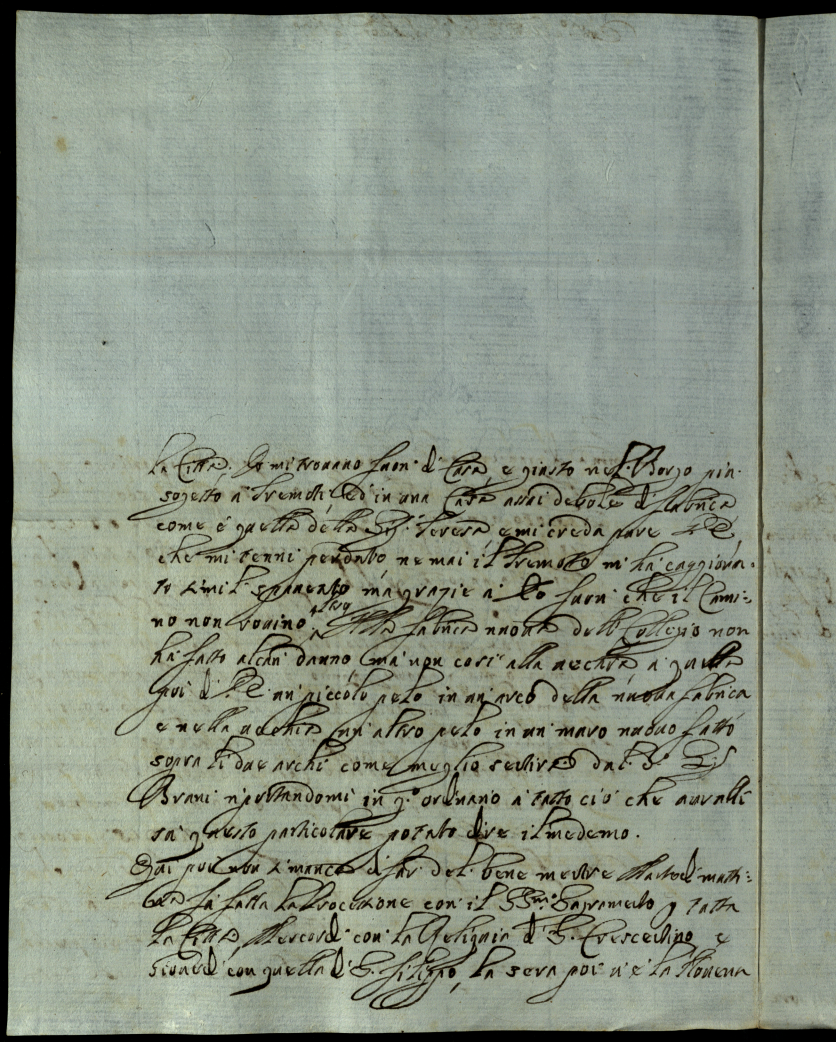 la Città. Io mi trovavo fuori di Casa e giusto nel Borgo più
sogetto a Tremoti ed in una Casa assai debole di fabrica
come è quella della Sig.ª Teresa e mi creda pure
che mi tenni perduto ne mai il Tremoto mi ha caggiona-
to simil spavento mà grazie a Dio fuori che il Cami-
no non rovinò altro. Alla fabrica nuova del Collegio non
hà fatto alcun danno mà non così alla vecchia a quella
poi di un piccolo pelo in un arco della nuova fabrica
e nella vecchia un altro pelo in un muro nuovo fatto
sopra li due archi come meglio sentirà dal S.r
Brani riportandomi in q.to ordinario a tutto ciò che avralli
sù questo particolare potuto dire il medemo.
Qui poi non si manca di far del bene mentre Martedì matti-
na fù fatta la Processione con il SS.mo Sagramento p tutta
la Città Mercordì con la Reliquia di S. Crescentino e
Giovedì con quella di S. Filippo, la sera poi vi è la Novena